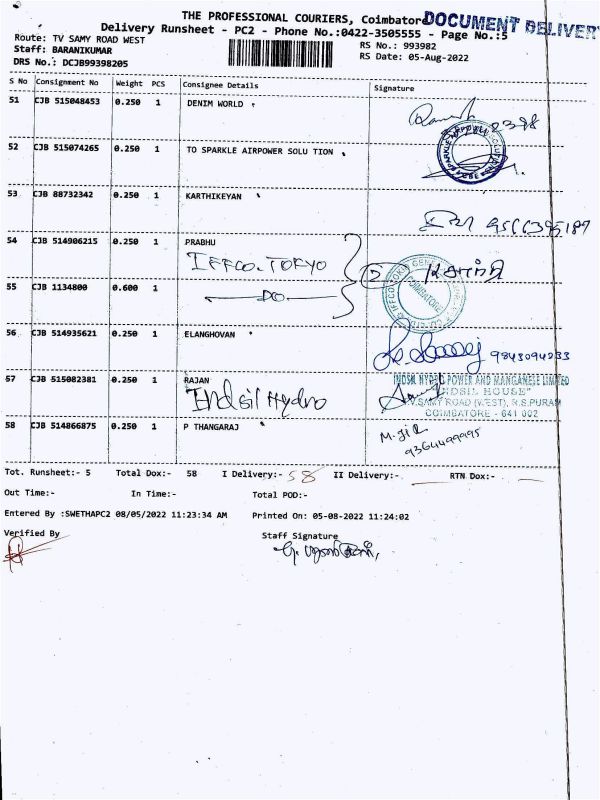 THE PROFESSIONAL COURIERS, Coimbator
DOCUMENT DELIVERY
Delivery Runsheet - PC2 - Phone No.:0422-3505555 - Page No.:5
Route: TV SAMY ROAD WEST
RS No.: 993982
Staff: BARANIKUMAR
RS Date: 05-Aug-2022
DRS No.: DCJB99398205
S No Consignment No Weight PCS Consignee Details Signature
51 CJB 515048453 0.250 1 DENIM WORLD
52 CJB 515074265 0.250 1 TO SPARKLE AIRPOWER SOLU TION
53 CJB 88732342 0.250 1 KARTHIKEYAN
9566395187
54 CJB 514906215 0.250 1 PRABHU
IFFCO. TOKYO
COIMBATORE
55 CJB 1134800 0.600 1
DO
56 CJB 514935621 0.250 1 ELANGHOVAN
9843094233
57 CJB 515082381 0.250 1 RAJAN
Indsil Hydro
INDSIL HYDRO POWER AND MANGANESE LIMITED
"INDSIL HOUSE"
T.V.SAMY ROAD (WEST), R.S.PURAM
COIMBATORE - 641 002
58 CJB 514866875 0.250 1 P THANGARAJ
9364499995
Tot. Runsheet:- 5 Total Dox:- 58 I Delivery:- 58 II Delivery:- RTN Dox:-
Out Time:- In Time:- Total POD:-
Entered By :SWETHAPC2 08/05/2022 11:23:34 AM Printed On: 05-08-2022 11:24:02
Verified By Staff Signature